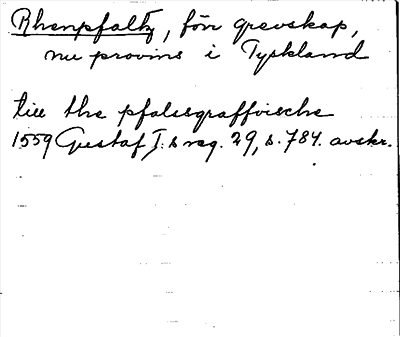 Rhenpfaltz, förr grevskap,
nu provins i Tyskland
till the pfalesgraffvische
1559 Gustaf I:s reg. 29, s. 784. avskr.